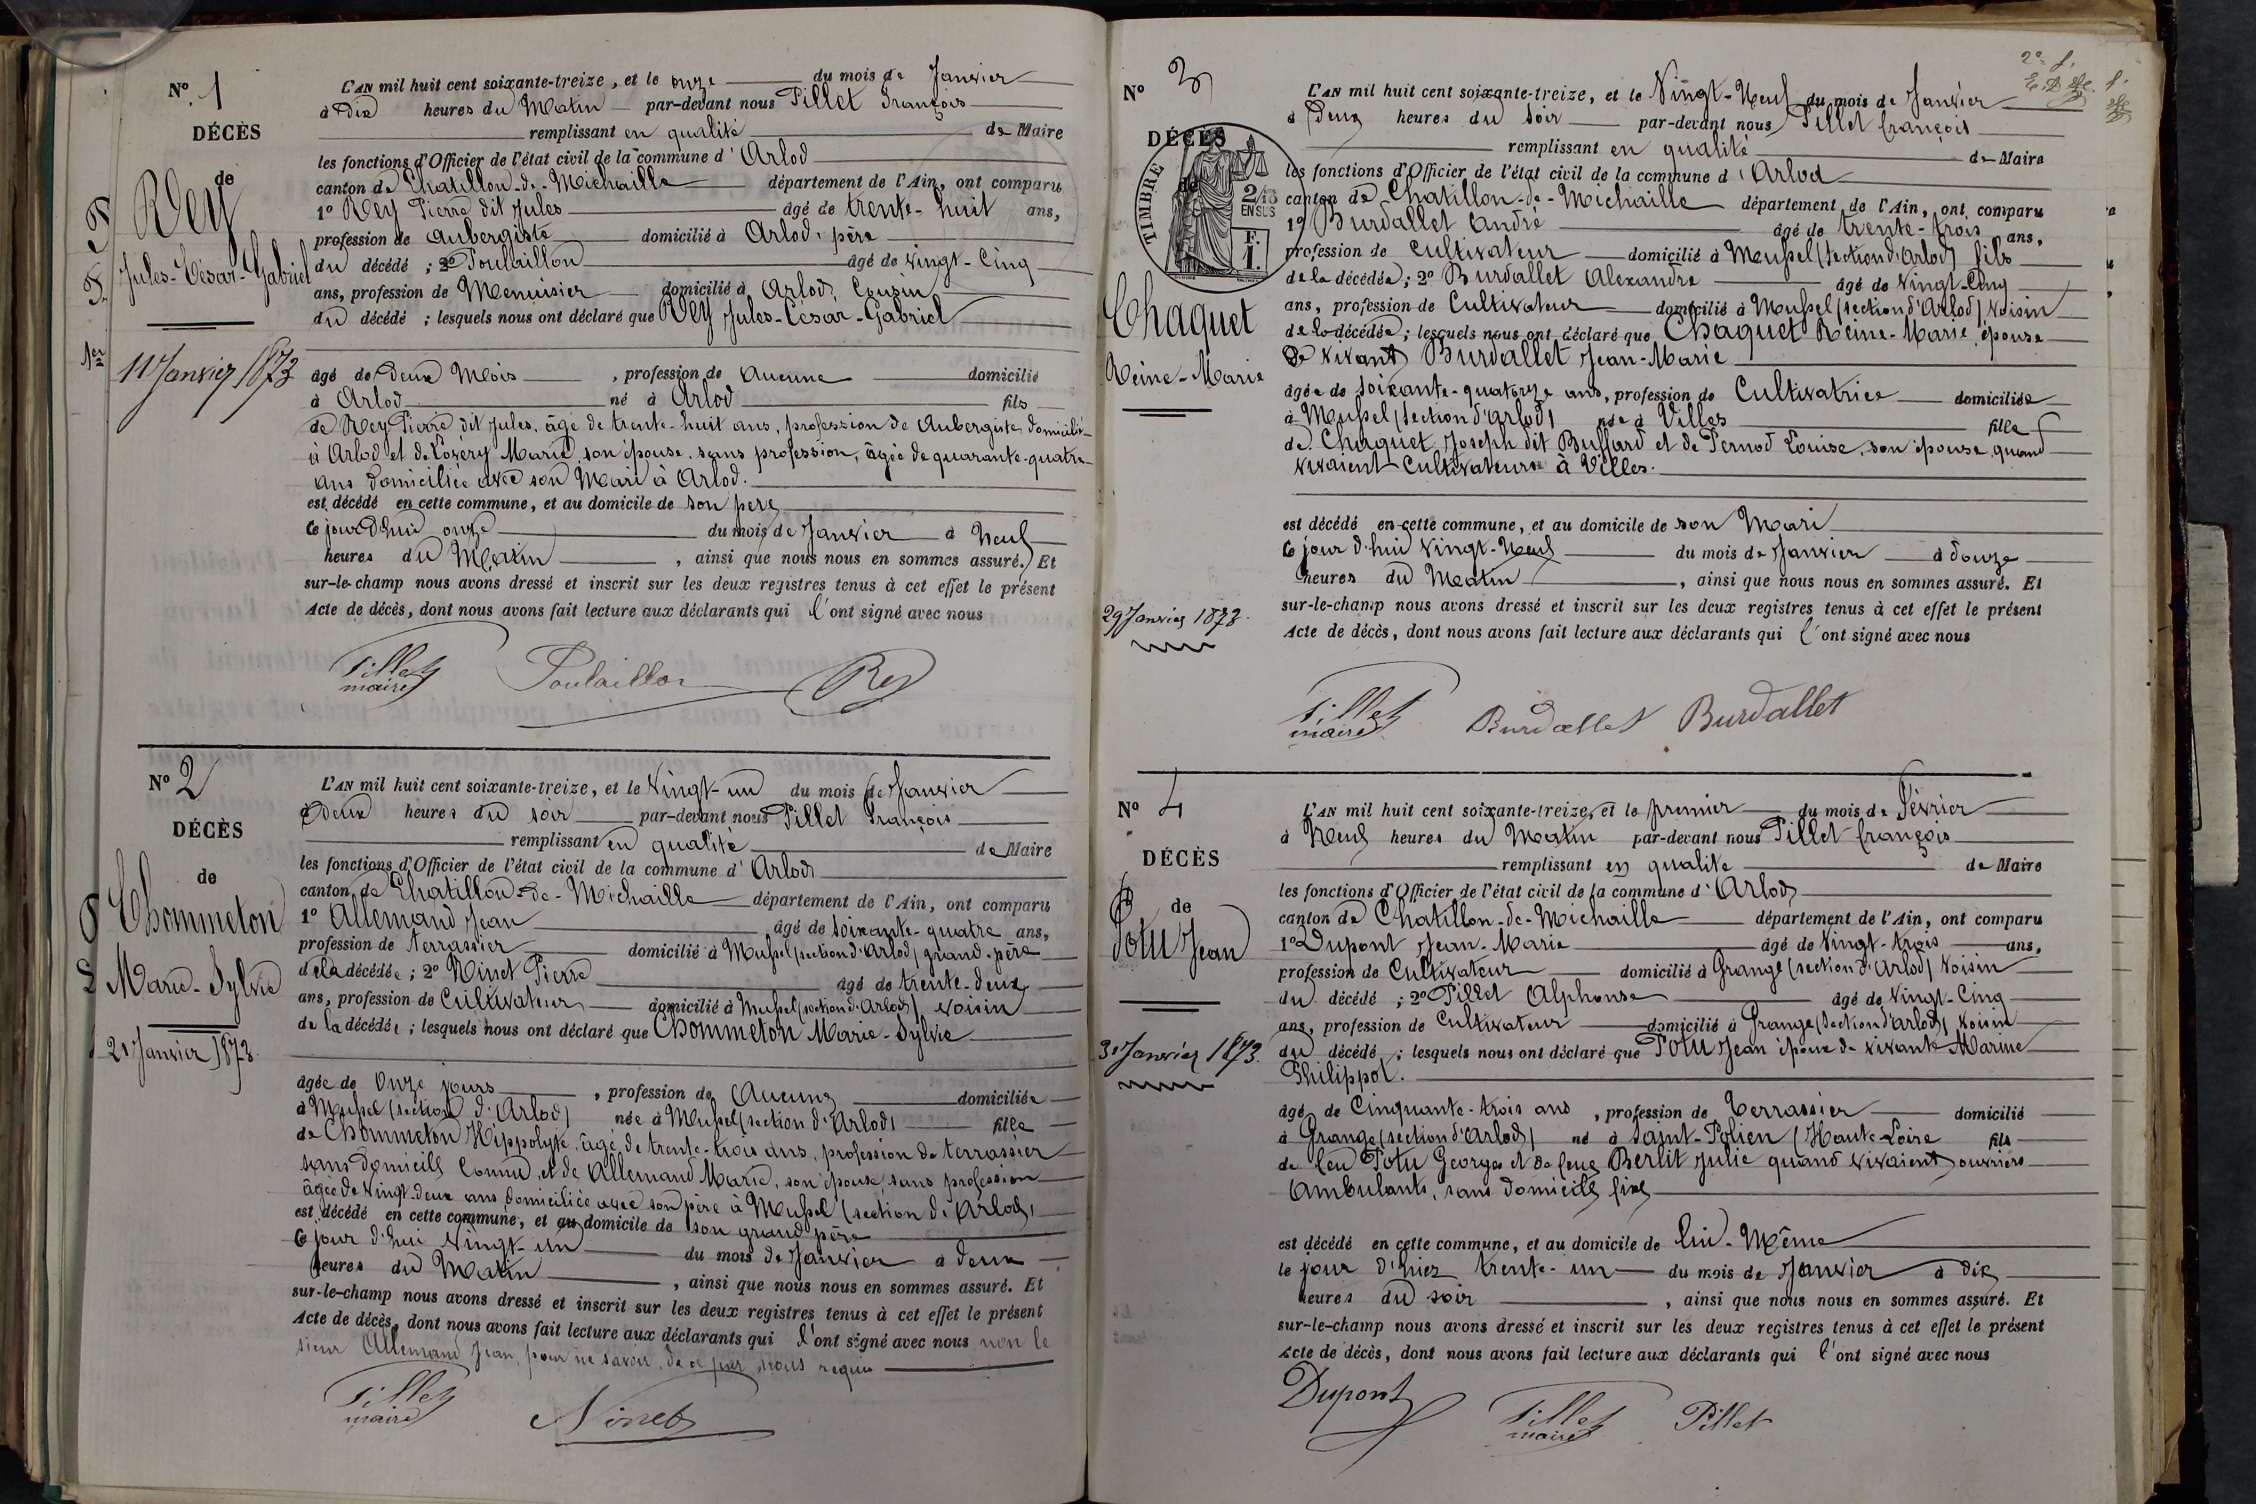 N° 1
DÉCÈS
de
Rey
Jules-César-Gabriel
11 Janvier 1873
L'AN mil huit cent soixante-treize, et le onze du mois de Janvier
à Dix heures du Matin par-devant nous Pillet François
remplissant en qualité de Maire
les fonctions d'Officier de l'état civil de la commune d'Arlod
canton de Chatillon-de-Michaille département de l'Ain, ont comparu
1° Rey Pierre dit Jules âgé de trente-huit ans,
profession de Aubergiste domicilié à Arlod, père
du décédé ; 2° Poulaillon âgé de vingt-Cinq
ans, profession de Menuisier domicilié à Arlod, Cousin
du décédé ; lesquels nous ont déclaré que Rey Jules-César-Gabriel
âgé de Deux Mois, profession de Aucune domicilié
à Arlod né à Arlod fils
de Rey Pierre dit Jules, âgé de trente-huit ans, profession de Aubergiste, domicilié
à Arlod et de Lovéry Marie, son épouse, sans profession, âgée de quarante-quatre
ans domiciliée avec son Mari à Arlod.
est décédé en cette commune, et au domicile de son père
ce jourd'hui onze du mois de Janvier à Neuf
heures du Matin, ainsi que nous nous en sommes assuré. Et
sur-le-champ nous avons dressé et inscrit sur les deux registres tenus à cet effet le présent
Acte de décès, dont nous avons fait lecture aux déclarants qui l'ont signé avec nous
Pillet
maire
Poulaillon
Rey
N° 2
DÉCÈS
de
Chommeton
Marie-Sylvie
21 Janvier 1873.
L'AN mil huit cent soixante-treize, et le Vingt-un du mois de Janvier
à Deux heures du soir par-devant nous Pillet François
remplissant en qualité de Maire
les fonctions d'Officier de l'état civil de la commune d'Arlod
canton de Chatillon-de-Michaille département de l'Ain, ont comparu
1° Allemand Jean âgé de soixante-quatre ans,
profession de Terrassier domicilié à Mussel (section d'Arlod) grand-père
de la décédée ; 2° Ninet Pierre âgé de trente-deux
ans, profession de Cultivateur domicilié à Mussel (section d'Arlod), voisin
de la décédée ; lesquels nous ont déclaré que Chommeton Marie-Sylvie
âgée de Onze jours, profession de Aucune domiciliée
à Mussel (section d'Arlod) née à Mussel (section d'Arlod) fille
de Chommeton Hippolyte, âgé de trente-trois ans, profession de terrassier
sans domicile connu, et de Allemand Marie, son épouse, sans profession
âgée de vingt-deux ans domiciliée avec son père à Mussel (section d'Arlod)
est décédé en cette commune, et au domicile de son grand père
ce jour d'hui Vingt-un du mois de Janvier à deux
heures du Matin, ainsi que nous nous en sommes assuré. Et
sur-le-champ nous avons dressé et inscrit sur les deux registres tenus à cet effet le présent
Acte de décès, dont nous avons fait lecture aux déclarants qui l'ont signé avec nous non le
sieur Allemand Jean, pour ne savoir, de ce par nous requis
Pillet
maire
Ninet
N° 3
DÉCÈS
de
TIMBRE
2/10
EN SUS
F.
1.
Chaquet
Reine-Marie
29 Janvier 1873.
L'AN mil huit cent soixante-treize, et le Vingt-Neuf du mois de Janvier
à Deux heures du soir par-devant nous Pillet François
remplissant en qualité de Maire
les fonctions d'Officier de l'état civil de la commune d'Arlod
canton de Chatillon-de-Michaille département de l'Ain, ont comparu
1° Burdallet André âgé de trente-trois ans,
profession de Cultivateur domicilié à Mussel (section d'Arlod) fils
de la décédée ; 2° Burdallet Alexandre âgé de Vingt-Cinq
ans, profession de Cultivateur domicilié à Mussel (section d'Arlod) Voisin
de la décédée ; lesquels nous ont déclaré que Chaquet Reine-Marie, épouse
de vivant Burdallet Jean-Marie
âgée de soixante-quatorze ans, profession de Cultivatrice domiciliée
à Mussel (section d'Arlod) née à Villes fille
de Chaquet Joseph dit Buffard et de Pernod Louise, son épouse, quand
vivaient Cultivateurs à Villes.
est décédé en cette commune, et au domicile de son Mari
ce jour d'hui Vingt-Neuf du mois de Janvier à douze
heures du Matin, ainsi que nous nous en sommes assuré. Et
sur-le-champ nous avons dressé et inscrit sur les deux registres tenus à cet effet le présent
Acte de décès, dont nous avons fait lecture aux déclarants qui l'ont signé avec nous
Pillet
maire
Burdallet Burdallet
N° 4
DÉCÈS
de
Potu Jean
31 Janvier 1873.
L'AN mil huit cent soixante-treize, et le premier du mois de Février
à Neuf heures du Matin par-devant nous Pillet François
remplissant en qualité de Maire
les fonctions d'Officier de l'état civil de la commune d'Arlod
canton de Chatillon-de-Michaille département de l'Ain, ont comparu
1° Dupont Jean-Marie âgé de Vingt-trois ans,
profession de Cultivateur domicilié à Grange (section d'Arlod) Voisin
du décédé ; 2° Pillet Alphonse âgé de Vingt-Cinq
ans, profession de Cultivateur domicilié à Grange (section d'Arlod), Voisin
du décédé ; lesquels nous ont déclaré que Potu Jean époux de vivante Marine
Philippot.
âgé de Cinquante-trois ans, profession de Terrassier domicilié
à Grange (section d'Arlod) né à Saint-Polien (Haute-Loire fils
de feu Potu Georges et de feue Berlit Julie quand vivaient ouvriers
Ambulants, sans domicile fixe
est décédé en cette commune, et au domicile de lui-Même
le jour d'hier trente-un du mois de Janvier à dix
heures du soir, ainsi que nous nous en sommes assuré. Et
sur-le-champ nous avons dressé et inscrit sur les deux registres tenus à cet effet le présent
Acte de décès, dont nous avons fait lecture aux déclarants qui l'ont signé avec nous
Dupont
Pillet
maire
Pillet